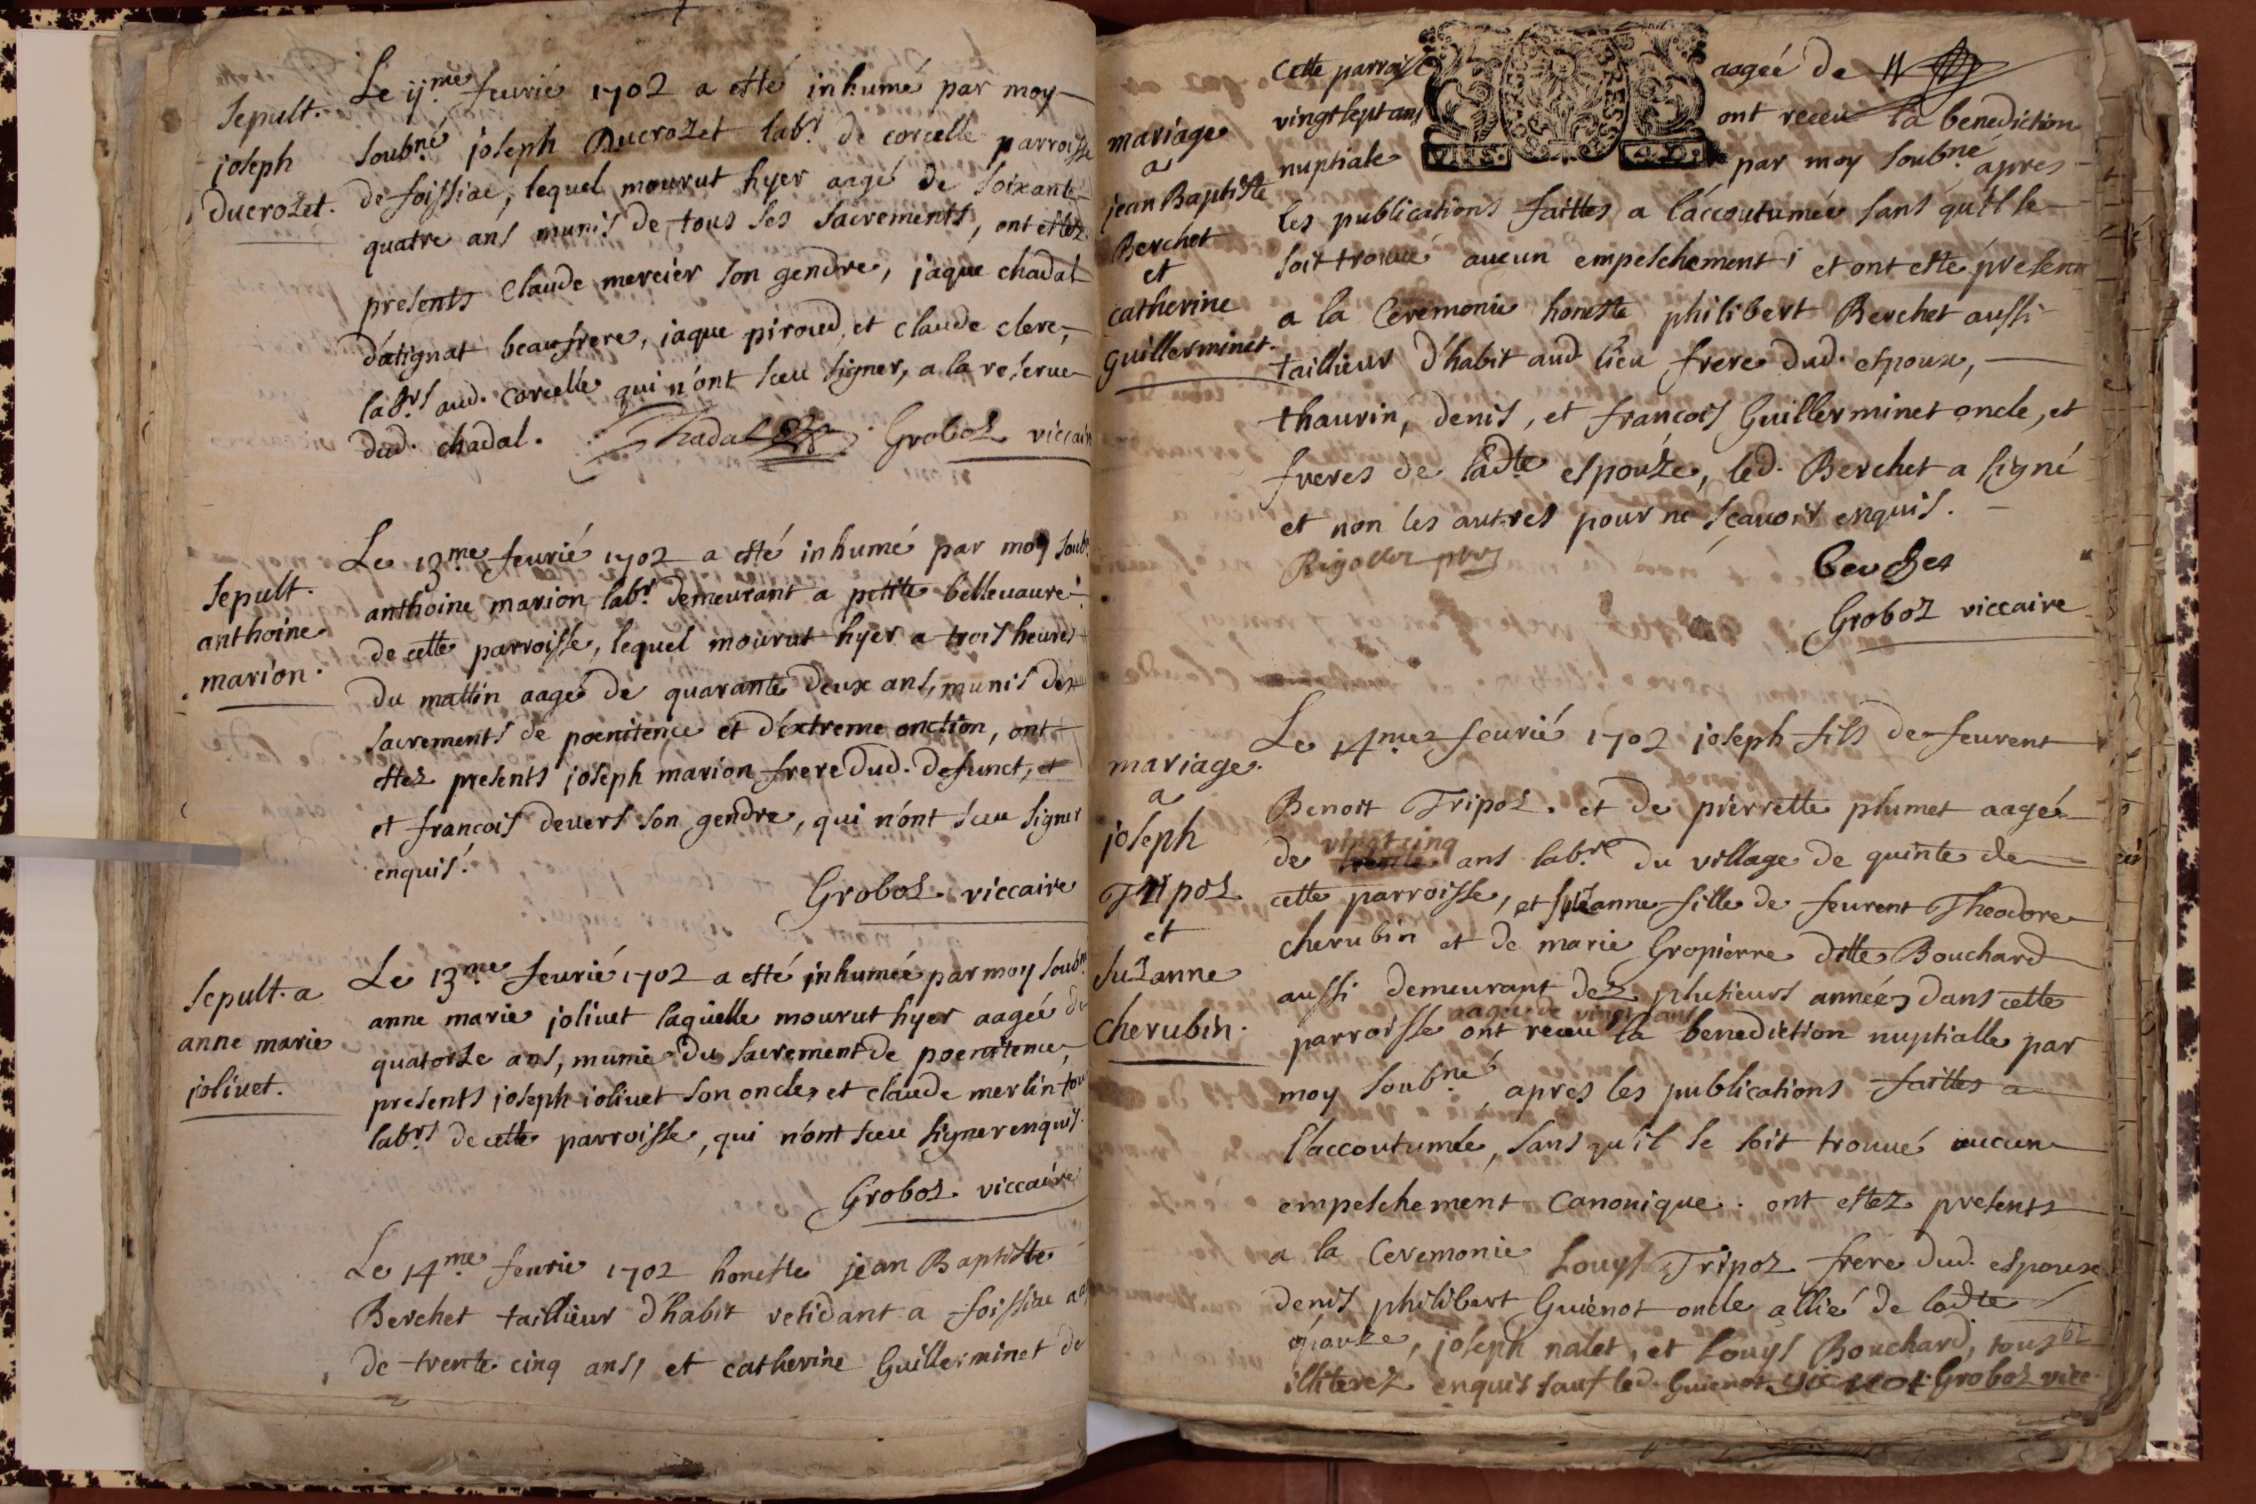 Sepult.
joseph
ducrozet.
Le ij.me feurié 1702 a esté inhumé par moy
soubné joseph Ducrozet labr. de corcelle parroisse
de foissiac, lequel mourut hyer aagé de soixante
quatre ans munis de tous ses sacrements, ont estez
presents Claude mercier son gendre, jaque chadal
d'atignat beaufrere, jaque piroud, et claude clerc,
labrs aud. corcelle qui n'ont sceu signer, a la reserue
dud. chadal. Chadal Groboz viccaire
Sepult.
anthoine
marion.
Le 13.me feurié 1702 a esté inhumé par moy soubn.
anthoine marion labr. demeurant a petite belleuaure
de cette parroisse, lequel mourut hyer a trois heures
du mattin aagé de quarante deux ans, munis des
sacrements de poenitence et d'extreme onction, ont
estez presents joseph marion frere dud. defunct, et
et francois deuers son gendre, qui n'ont sceu signer
enquis.
Groboz. viccaire
Sepult. a
anne marie
joliuet.
Le 13.me feurié 1702 a esté inhumée par moy soubn.
anne marie joliuet laquelle mourut hyer aagée de
quatorze ans, munie du sacrement de poenitence,
presents joseph joliuet son oncle, et claude merlin tous
labrs de cette parroisse, qui n'ont sceu signer enquis.
Groboz. viccaire
Le 14.me feurie 1702 honeste jean Baptiste
Berchet taillieur d'habit residant a foissiac aag
de trente cinq ans, et catherine Guillerminet de
mariage
a
jean Baptiste
Berchet
et
catherine
guillerminet.
cette parroisse aagée de
vingt sept ans ont receu la benediction
nuptiale par moy soubné apres
les publications faittes a l'accoutumée sans qu'il se
soit trouué aucun empeschement et ont esté presents
a la Ceremonie honeste philibert Berchet aussi
taillieur d'habit aud. lieu frere dud. espoux,
thaurin, denis, et francois Guillerminet oncle, et
freres de ladte espouze, led. Berchet a signé
et non les autres pour ne sçauoir enquis.
Berchet
Groboz viccaire
mariage.
a
joseph
Tripoz
et
Suzanne
Cherubin.
Le 14.me feurié 1702 joseph fils de feurent
Benoit Tripoz. et de pierrette plumet aagée
vingt cinq
de trente ans labr. du village de quinte de
cette parroisse, et suzanne fille de feurent Theodore
cherubin et de marie Gropierre ditte Bouchard
aussi demeurant dez plusieurs années dans cette
aagée de vingt ans
parroisse ont receu la benediction nuptialle par
moy soubné, apres les publications faittes a
l'accoutumée, sans qu'il se soit trouué aucun
empeschement Canonique. ont estez presents
a la Ceremonie Louys Tripoz frere dud. espoux
denis philibert Guienot oncle allié de ladte
espouze, joseph nalet, et Louys Bouchard, tous
illiterez enquis sauf led. Guienot Groboz vicc.